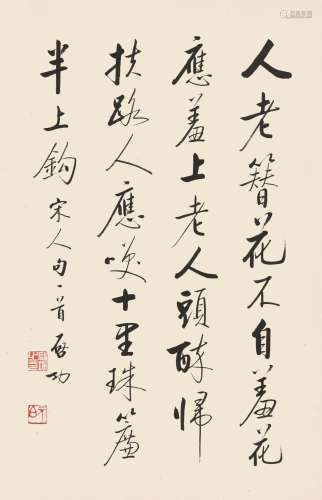 人老簪花不自羞花
應羞上老人頭醉歸
扶路人應笑十里珠簾
半上鈎宋人句一首啓功